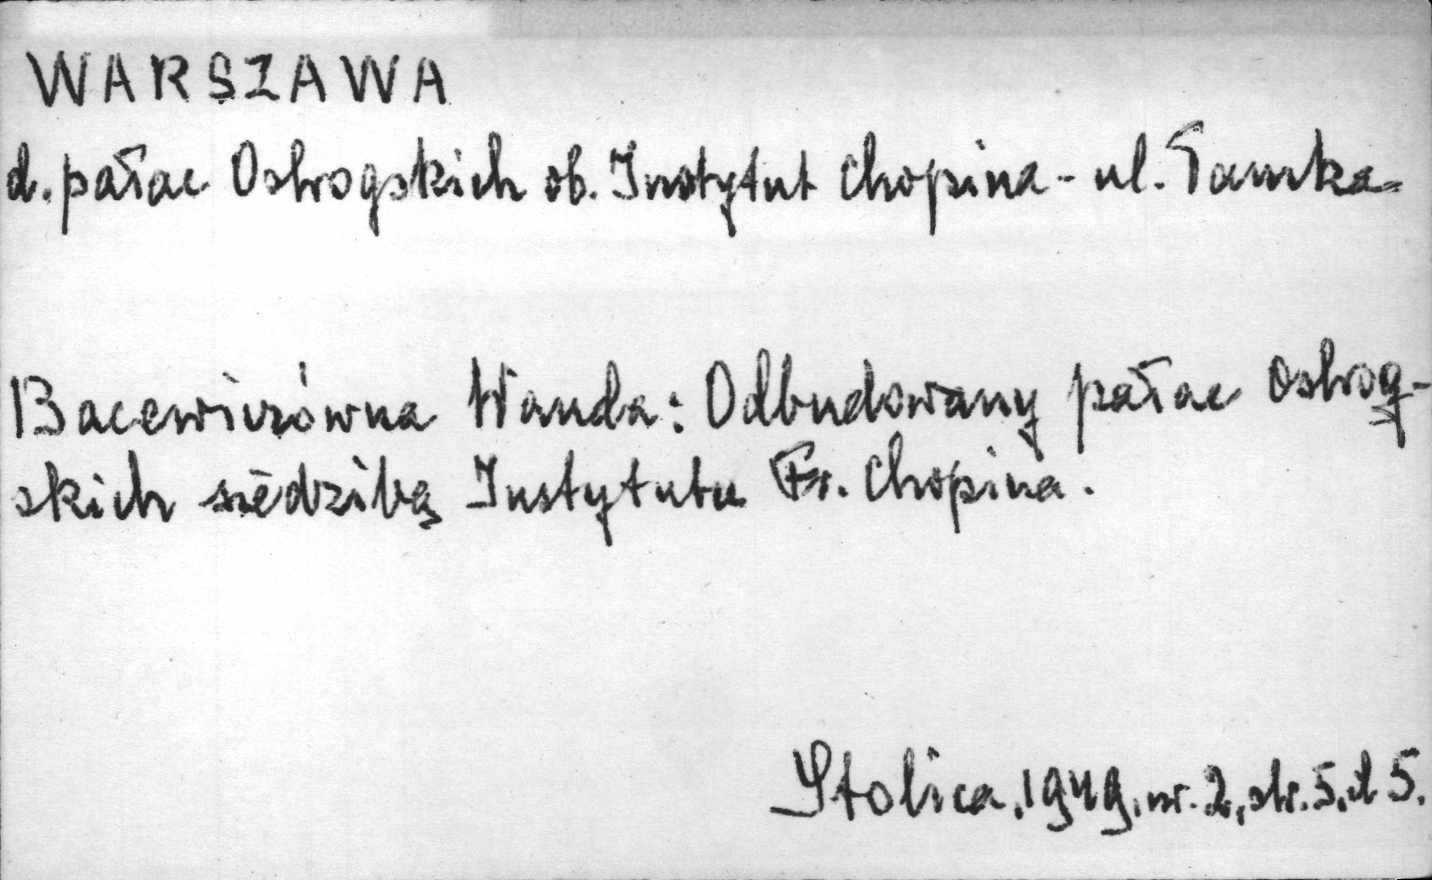 WARSZAWA
d. pałac Ostrogskich ob. Instytut Chopina - ul. Tamka
Bacewiczówna Wanda: Odbudowany pałac Ostrog-
skich siedzibą Instytutu Fr. Chopina.
Stolica, 1949, nr. 2, str. 5, il 5.